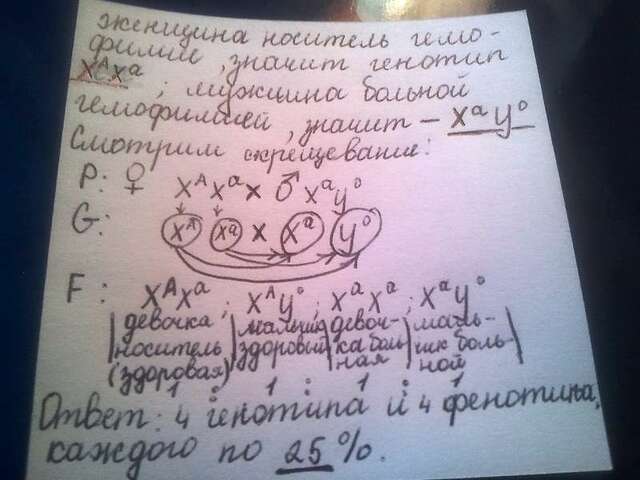 женщина носитель гемо-
филии, значит генотип
XᴬXᵃ; мужчина больной
гемофилией, значит – XᵃY⁰
Смотрим скрещевание:
P: ♀ XᴬXᵃ x ♂ XᵃY⁰
G: Xᴬ Xᵃ x Xᵃ Y⁰
F: XᴬXᵃ; XᴬY⁰; XᵃXᵃ; XᵃY⁰
девочка мальчик девоч- маль-
носитель здоровый ка боль- чик боль-
(здоровая) ная ной
1 : 1 : 1 : 1
Ответ: 4 генотипа и 4 фенотипа,
каждого по 25%.